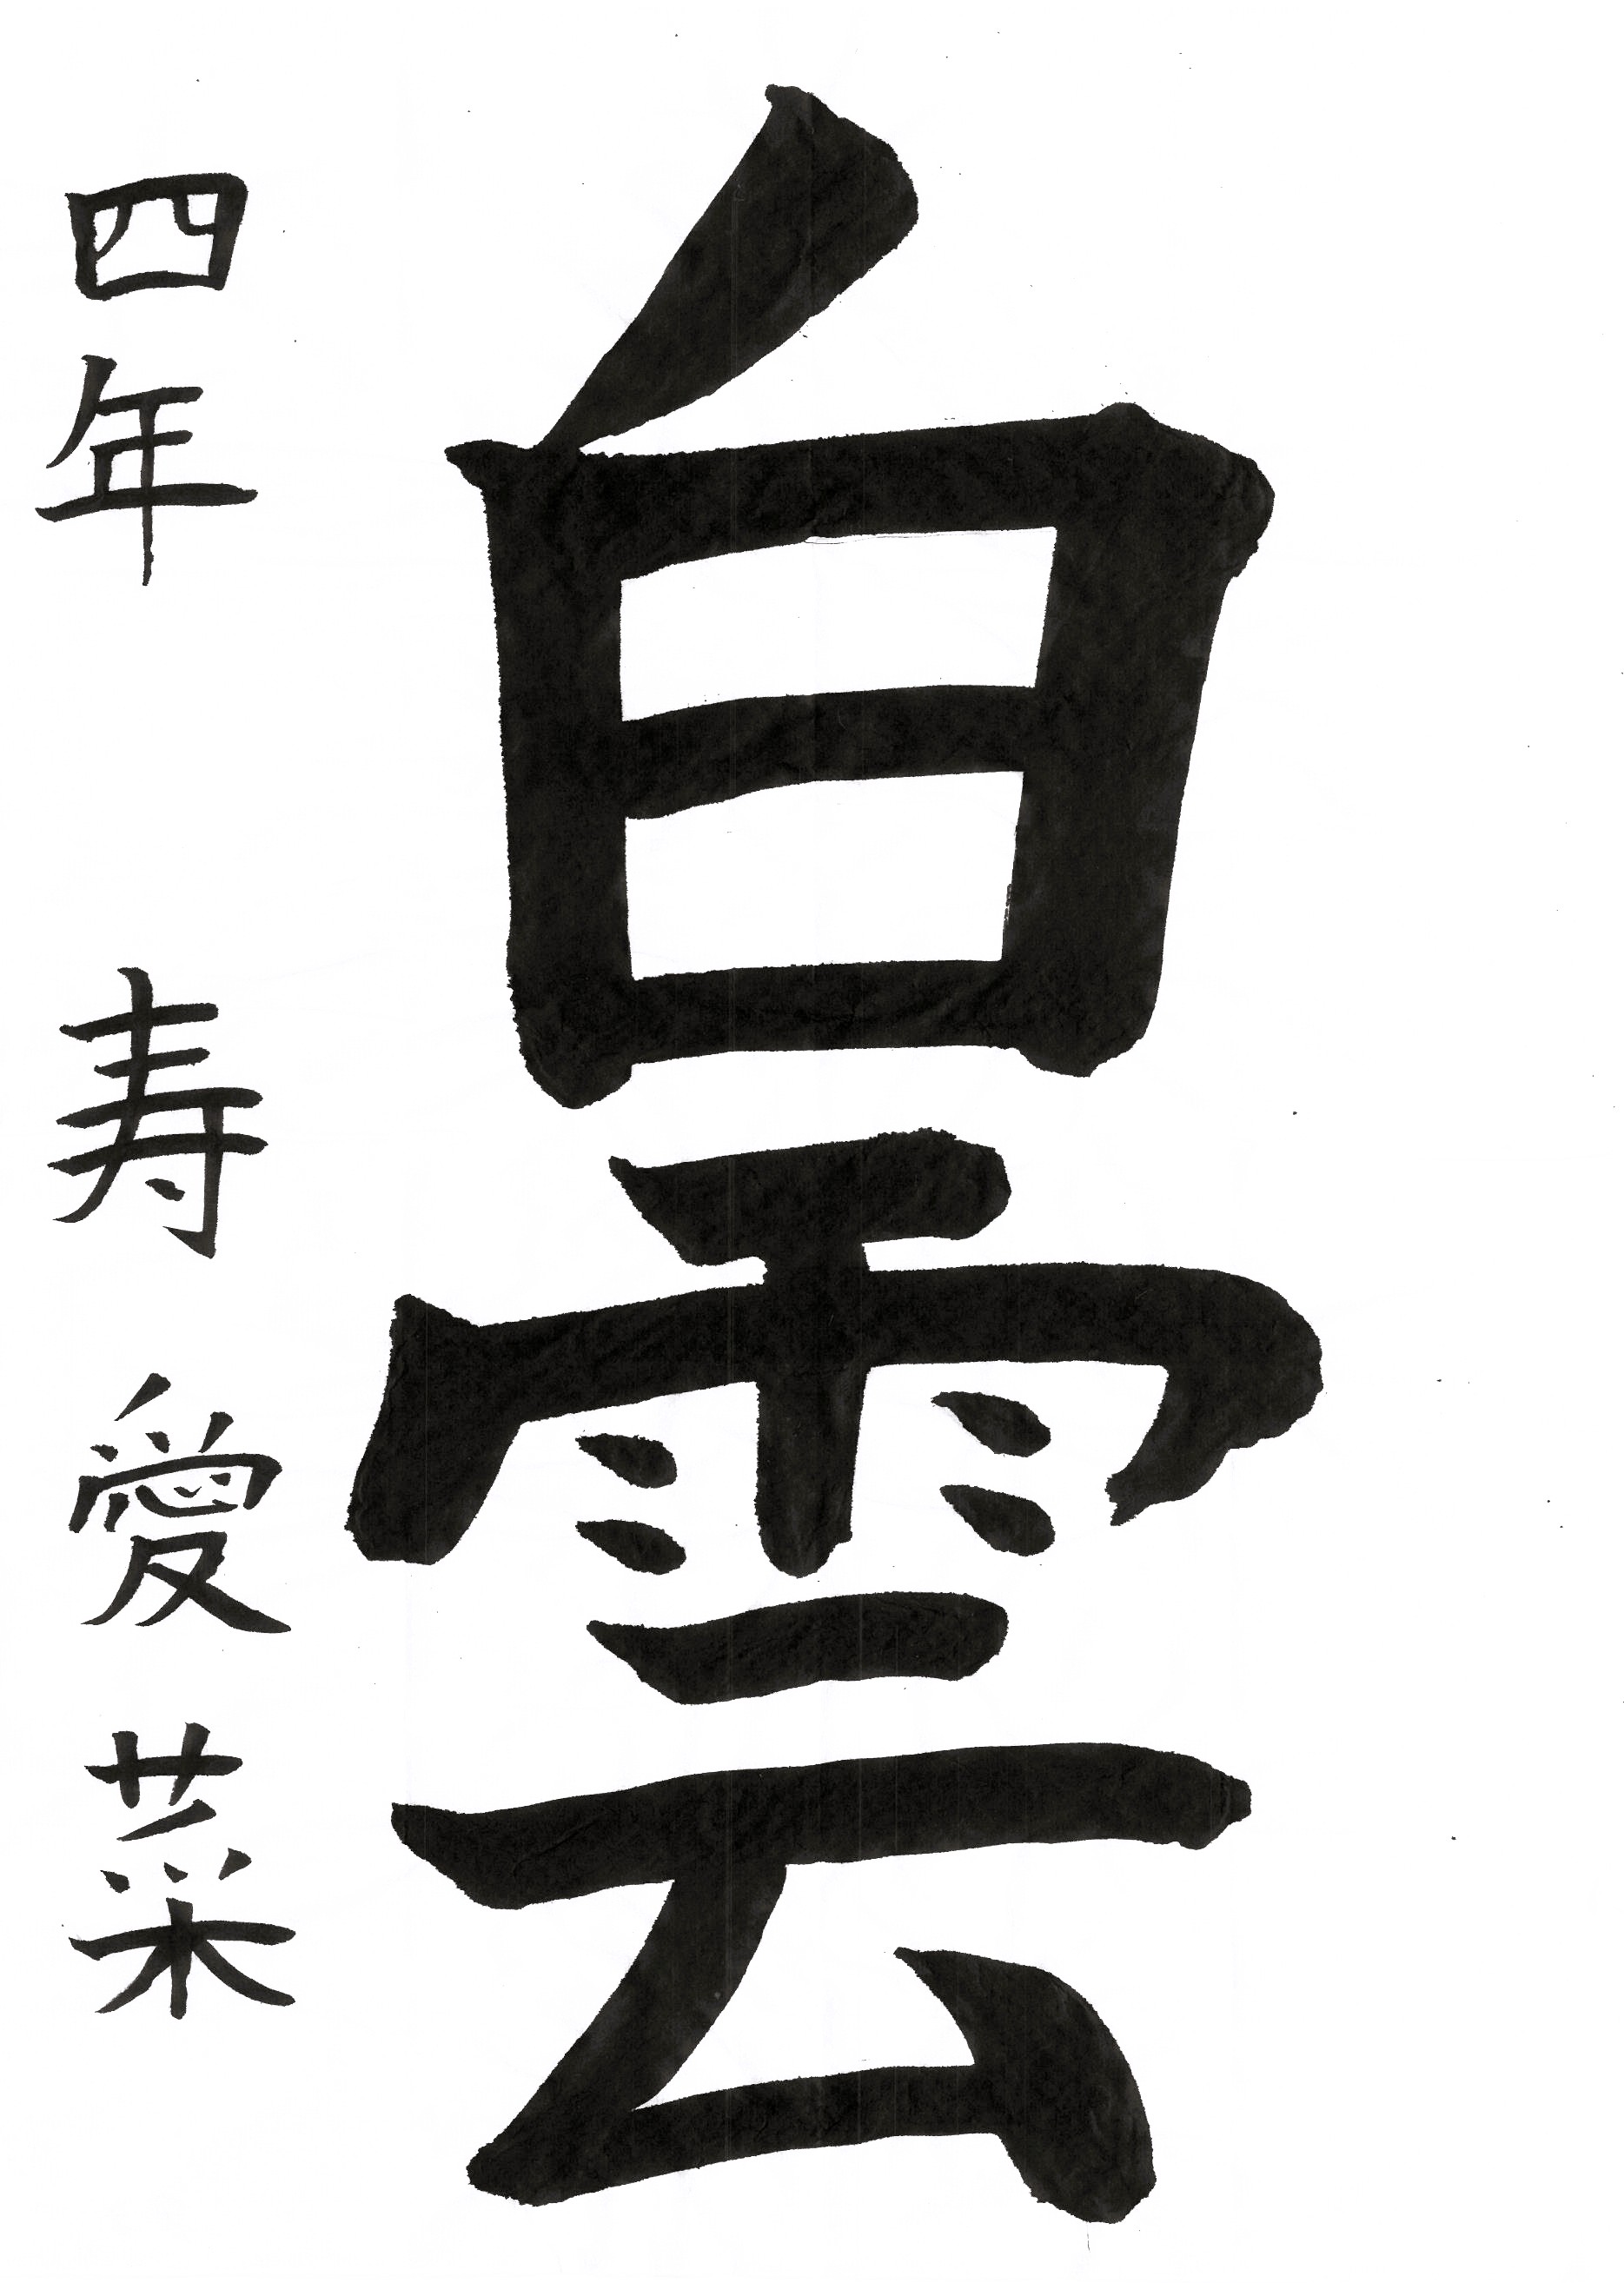 白雲
四年 寿愛菜